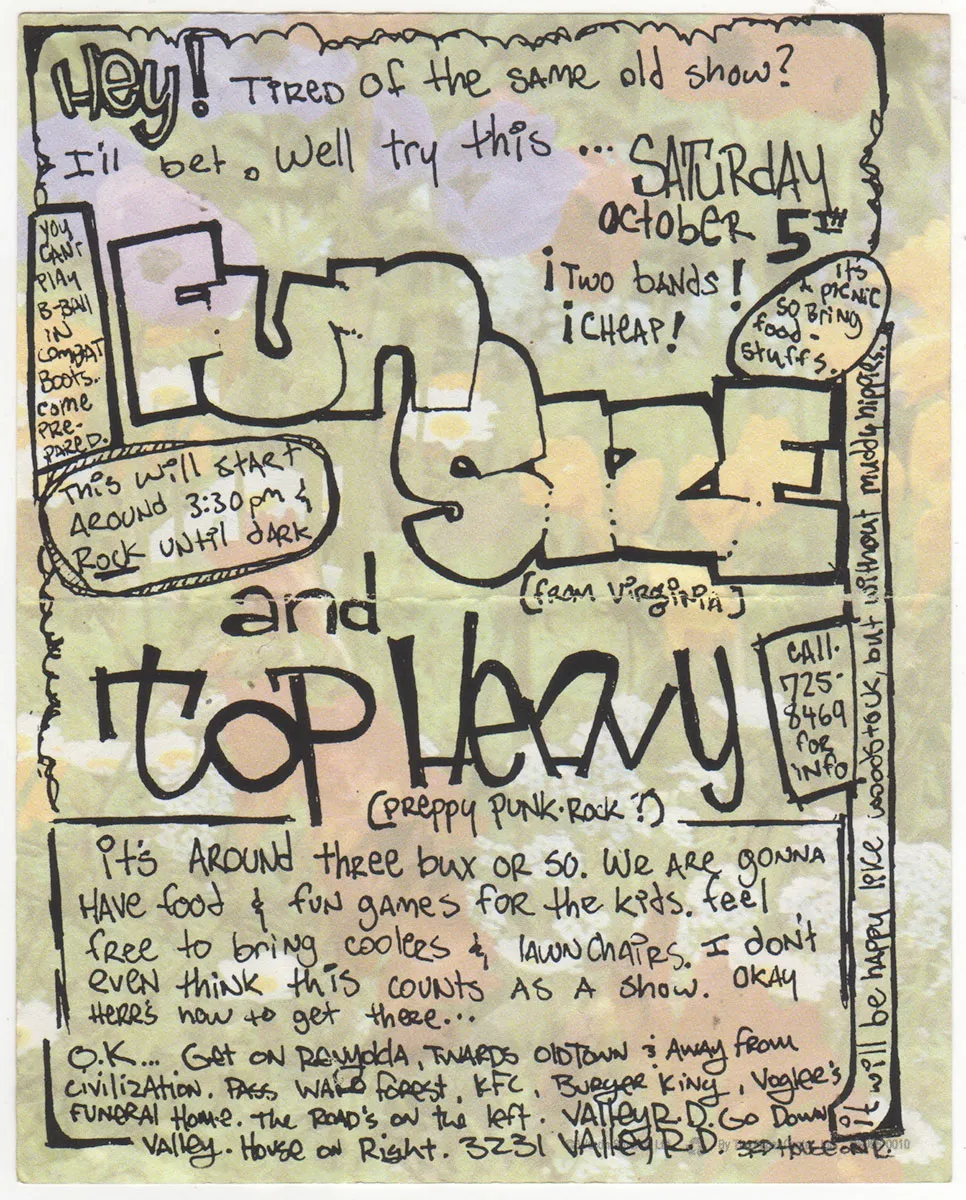 Hey! TIRED Of the SAME old show?
I'll bet. Well try this ...
SATURDAY
OCTOBER 5TH
¡TWO bANdS!
¡CHEAP!
it's
A PICNIC
SO BRING
food-
stuffs.
YOU
CAN'T
PLAY
B-BAll
IN
COMBAT
BOOTS.
COME
PRE-
PARED.
FUN
SIZE
(from VIRGINIA)
THIS WILL START
AROUND 3:30 pm &
ROCK UNTIL dARK
and
TOP HEAVY
(PREPPY PUNK·ROCK?!)
CALL·
725-
8469
for
info
it will be happy like woodstock, but without muddy hippies...
it's AROUND three bux OR SO. WE ARE gONNA
HAVE food & fUN gAMES fOR the kids. feel
free to bring coolers & lAWN CHAIRS. I don't
even think this COUNTS AS A show. OKAY
HERE'S how to get there...
O.K... GET ON REynolda, TWARDS OLDTOWN & AWAY from
CIVILIZATION. PASS WAKE forEST, KFC, BURGER KING, Vogler's
FUNERAL HOME. THE ROAD'S ON the left. VALLEY R.D. GO DOWN
VALLEY. HOUSE ON RIGHT. 3231 VALLEY R.D. 3RD HOUSE ON R.